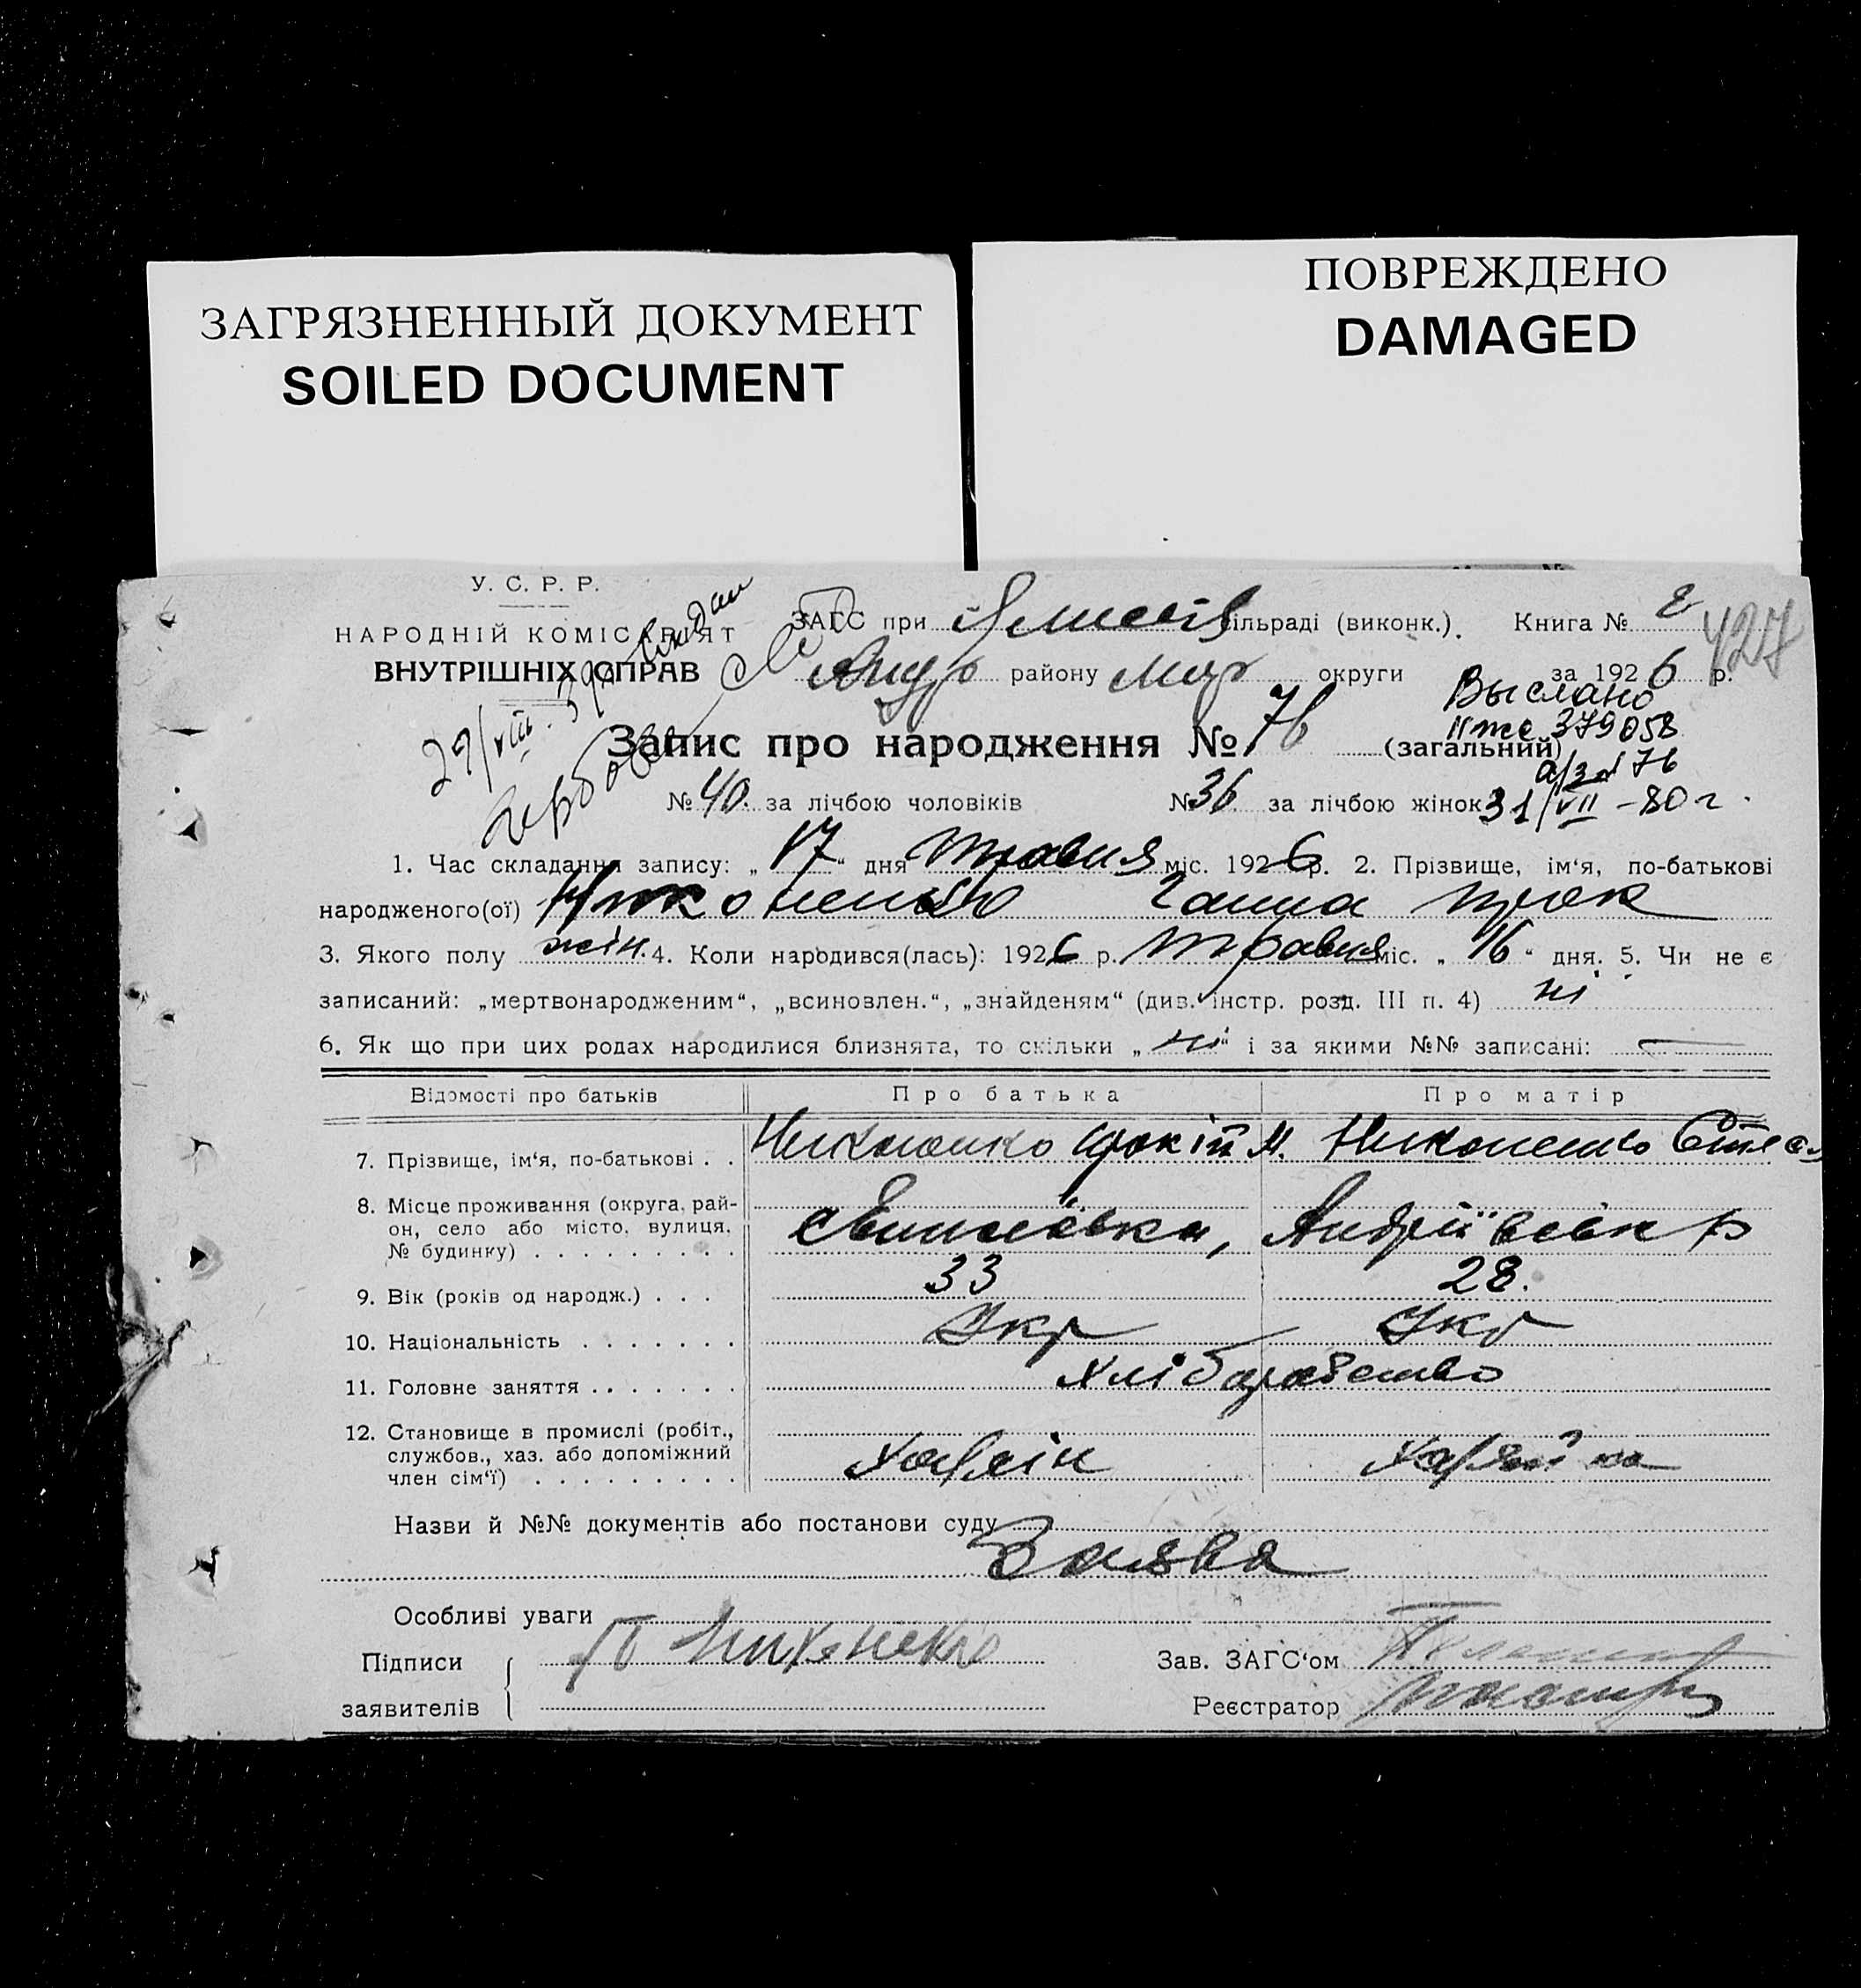 ЗАГРЯЗНЕННЫЙ ДОКУМЕНТ
SOILED DOCUMENT
ПОВРЕЖДЕНО
DAMAGED
У. С. Р. Р.
НАРОДНІЙ КОМІСАРІЯТ
ВНУТРІШНІХ СПРАВ
ЗАГС при сільраді (виконк.). Книга №
427
району округи за 1926 р.
Выслано
379058
а/з № 76
31/VII-80 г.
29/VIII
Запис про народження № 76 (загальний)
№ 40. за лічбою чоловіків № 36 за лічбою жінок
1. Час складання запису: „17“ дня травня міс. 1926 р. 2. Прізвище, ім‘я, по-батькові
народженого(ої) Никоненко Ганна Прок
3. Якого полу жін. 4. Коли народився(лась): 1926 р. травня міс. „16“ дня. 5. Чи не є
записаний: „мертвонародженим“, „всиновлен.“, „знайденям“ (див. інстр. розд. III п. 4) ні
6. Як що при цих родах народилися близнята, то скільки „ні“ і за якими №№ записані: —
Відомості про батьків Про батька Про матір
7. Прізвище, ім‘я, по-батькові . . Никоненко Прокіп М. Никоненко
8. Місце проживання (округа, рай-
он, село або місто, вулиця,
№ будинку) . . . . . . . . . Андріївськ р
9. Вік (років од народж.) . . . 33 28.
10. Національність . . . . . . . Укр Укр
11. Головне заняття . . . . . . . Хліборобство
12. Становище в промислі (робіт.,
службов., хаз. або допоміжний
член сім‘ї) . . . . . . . . . Хазяїн Хазяйка
Назви й №№ документів або постанови суду
Заява
Особливі уваги
Підписи П Никоненко Зав. ЗАГС‘ом
заявителів Реєстратор